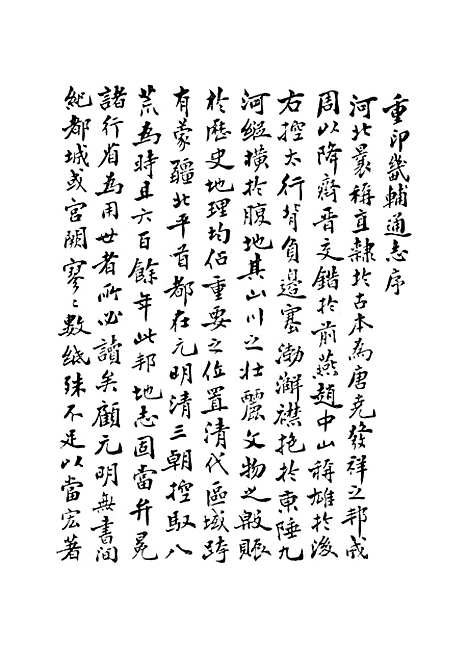 重印畿輔通志序
河北曩稱直隸於古本為唐堯發祥之邦成
周以降齊晋交錯於前燕趙中山稱雄於後
右控太行背負邊塞渤澥襟抱於東陲九
河縱橫於腹地其山川之壯麗文物之殷賑
於歷史地理均佔重要之位置清代區域跨
有蒙疆北平首都在元明清三朝控馭八
荒為時且六百餘年此邦地志固當弁冕
諸行省為用世者所必讀矣顧元明無書洎
紀都城或宮闕寥〻數紙殊不足以當宏著